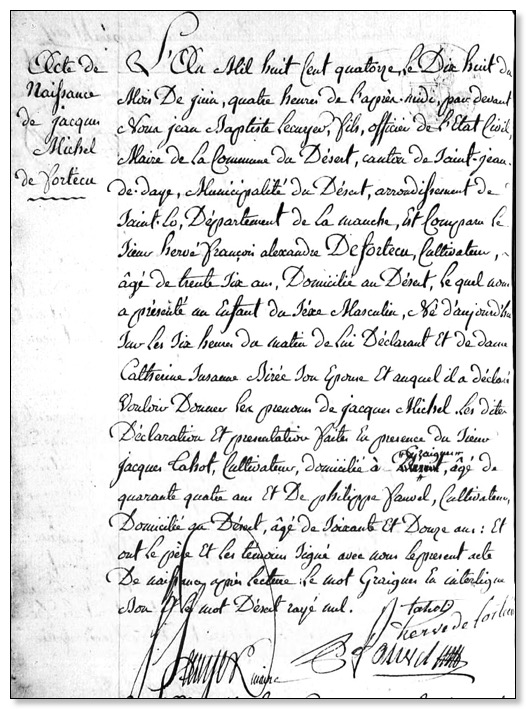 Acte de
Naissance
de jacques
Michel
de fortecu
L'An Mil huit Cent quatorze, le Dix huit du
Mois De juin, quatre heures de l'après-midi, par devant
Nous jean Baptiste Lecuyer, fils, officier de l'Etat Civil,
Maire de la Commune du Désert, canton de Saint-jean-
de-daye, Municipalité du Désert, arrondissement de
Saint-Lo, Département de la manche, Est Comparu le
Sieur hervé françois alexandre Defortecu, Cultivateur,
âgé de trente Six ans, Domicilié au Désert, le quel nous
a présenté un Enfant du Séxe Masculin, Né d'aujourd'hui
Sur les Six heures du matin de lui Déclarant Et de dame
Catherine Susanne Sirée Son Epouse Et auquel il a déclaré
Vouloir Donner les prenoms de jacques Michel. Les dites
Déclaration Et presentation faites En presence du Sieur
jacques tahot, Cultivateur, domicilié à Graignes Désert, âgé de
quarante quatre ans Et De philippe fauvel, Cultivateur,
Domicilié au Désert, âgé de Soixante Et Douze ans : Et
ont le père Et les temoins Signé avec nous le present acte
De naissance, après lecture. Le mot Graignes En interligne
Bon Et le mot Désert rayé nul.
j tahot
herve de fortecu
Lecuyer maire
P fauvel